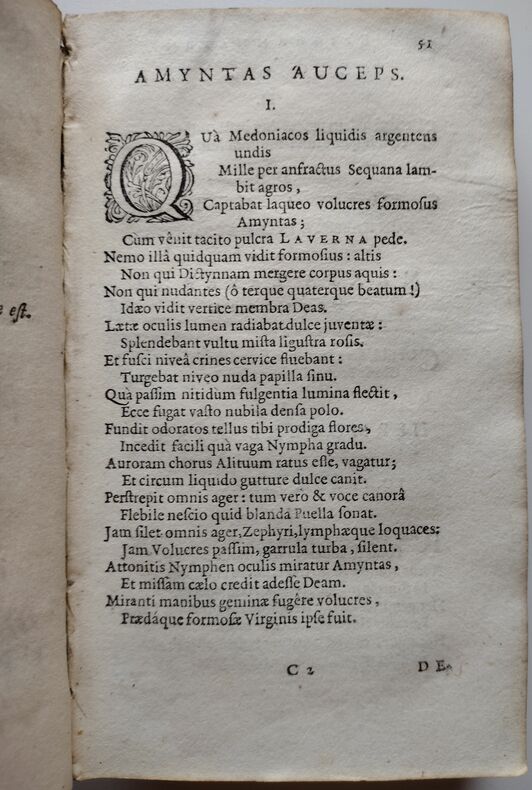 51
AMYNTAS AUCEPS.
I.
QUà Medoniacos liquidis argentens
undis
Mille per anfractus Sequana lam-
bit agros,
Captabat laqueo volucres formosus
Amyntas;
Cum vênit tacito pulcra LAVERNA pede.
Nemo illâ quidquam vidit formosius: altis
Non qui Dictynnam mergere corpus aquis:
Non qui nudantes (ô terque quaterque beatum!)
Idæo vidit vertice membra Deas.
Lætæ oculis lumen radiabat dulce juventæ:
Splendebant vultu mista ligustra rosis.
Et fusci niveâ crines cervice fluebant:
Turgebat niveo nuda papilla sinu.
Quà passim nitidùm fulgentia lumina flectit,
Ecce fugat vasto nubila densa polo.
Fundit odoratos tellus tibi prodiga flores,
Incedit facili quà vaga Nympha gradu.
Auroram chorus Alituum ratus esse, vagatur;
Et circum liquido gutture dulce canit.
Perstrepit omnis ager: tum verò & voce canorâ
Flebile nescio quid blanda Puella sonat.
Jam silet omnis ager, Zephyri, lymphæque loquaces:
Jam Volucres passim, garrula turba, silent.
Attonitis Nymphen oculis miratur Amyntas,
Et missam cælo credit adesse Deam.
Miranti manibus geminæ fugêre volucres,
Prædáque formosæ Virginis ipse fuit.
C 2 DE
e est.